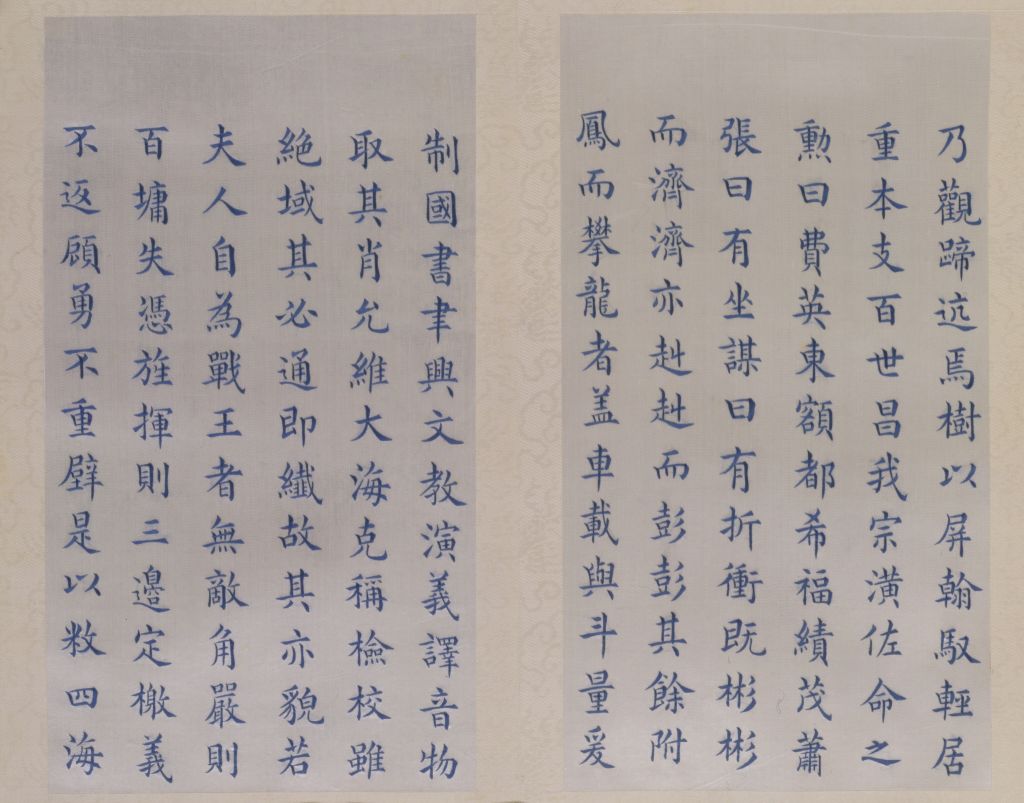 乃觀蹄迒焉樹以屏翰馭輕居
重本支百世昌我宗潢佐命之
勲曰費英東額都希福績茂蕭
張曰有坐謀曰有折衝既彬彬
而濟濟亦赳赳而彭彭其餘附
鳳而攀龍者盖車載與斗量爰
制國書聿興文教演義譯音物
取其肖允維大海克稱檢校雖
絶域其必通即纎故其亦貌若
夫人自為戰王者無敵角嚴則
百墉失憑旌揮則三邊定檄義
不返顧勇不重躃是以敉四海